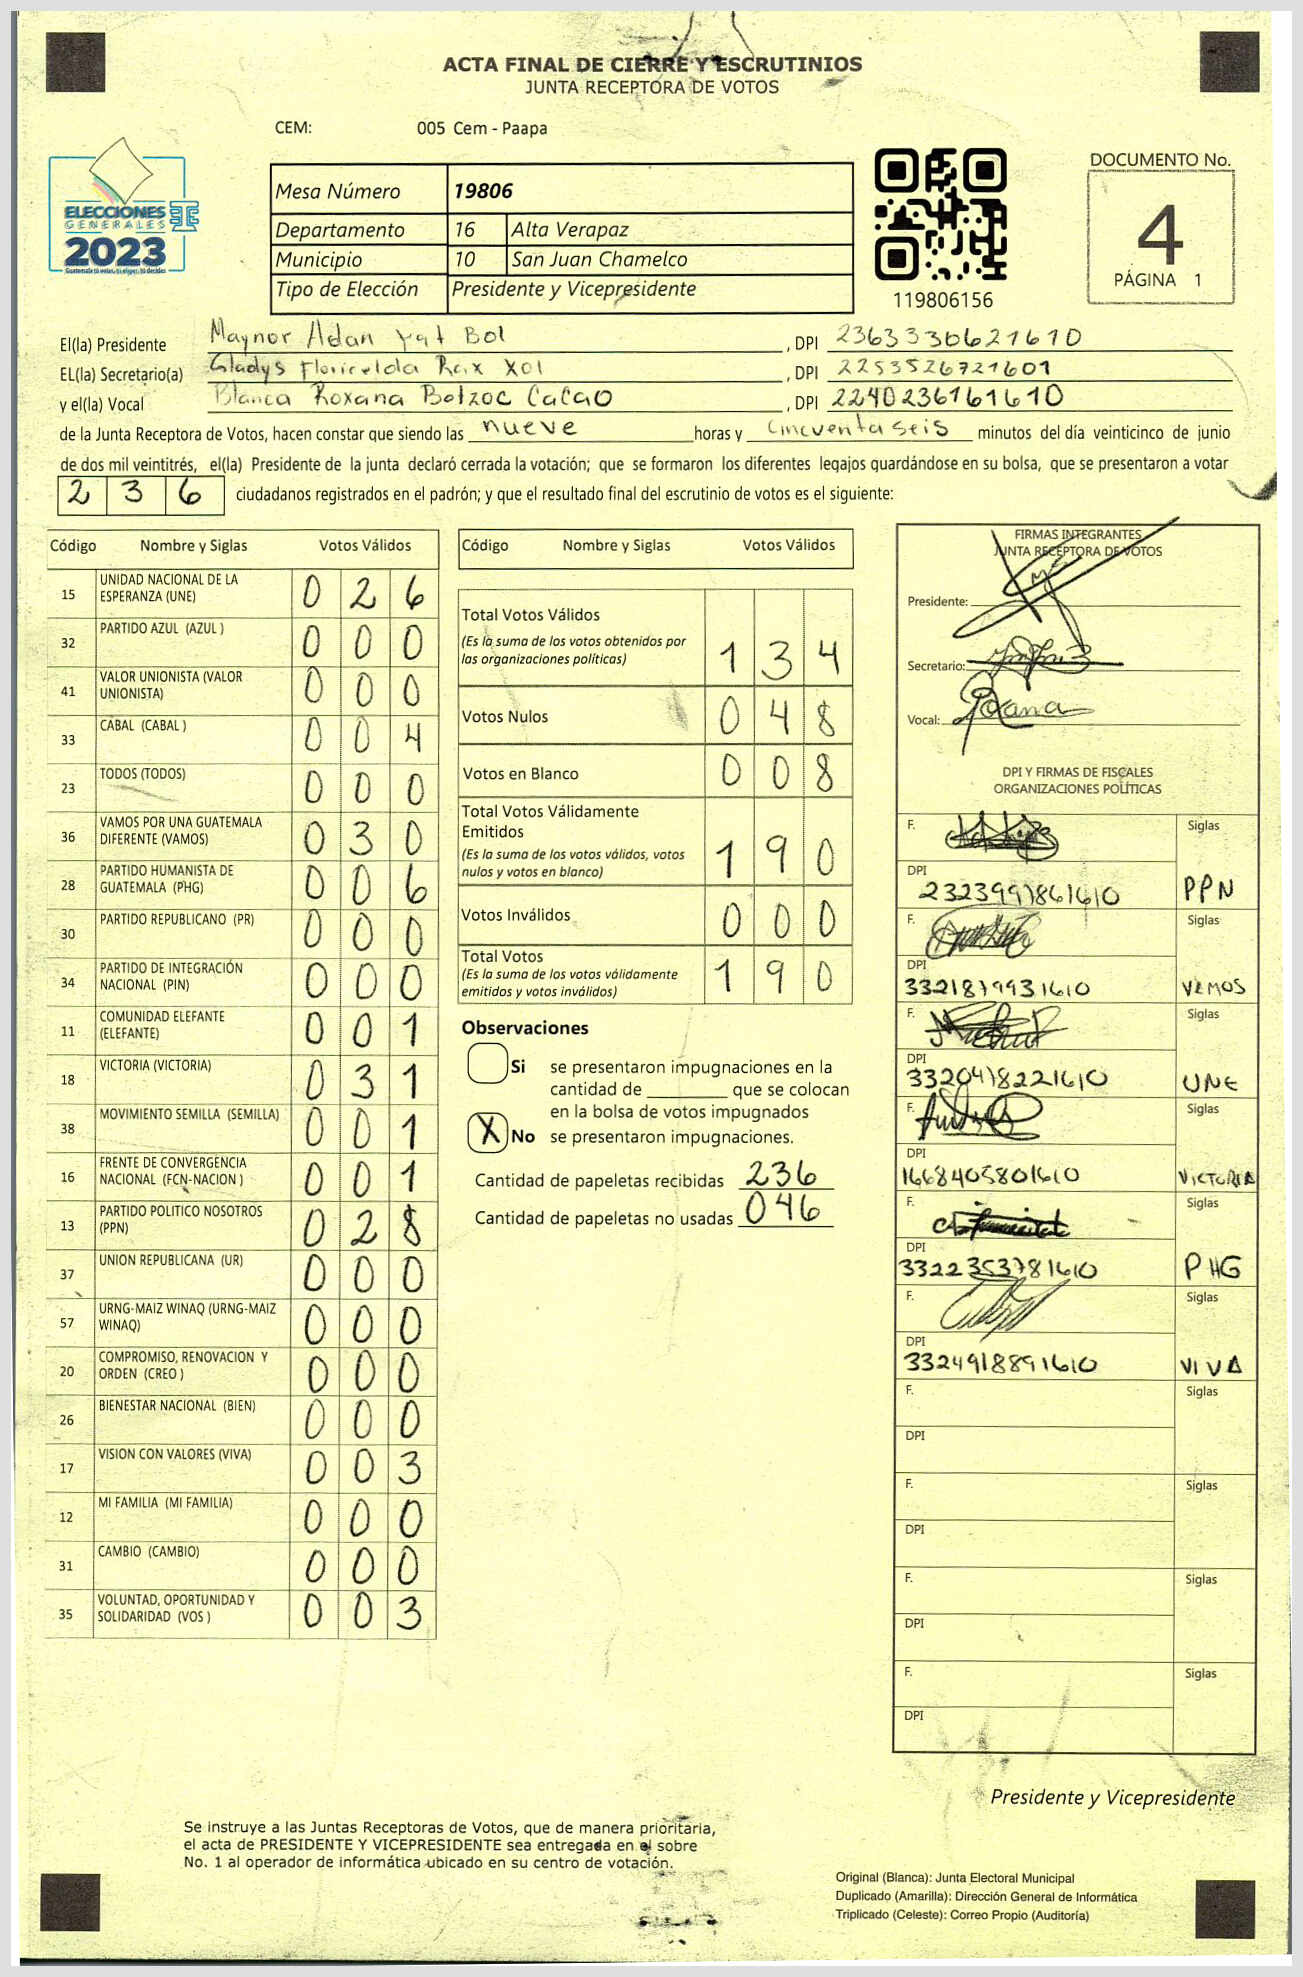 ACTA FINAL DE CIERRE Y ESCRUTINIOS
JUNTA RECEPTORA DE VOTOS
CEM: 005 Cem - Paapa
ELECCIONES
GENERALES
2023
Mesa Número 19806
Departamento 16 Alta Verapaz
Municipio 10 San Juan Chamelco
Tipo de Elección Presidente y Vicepresidente
119806156
DOCUMENTO No.
4
PÁGINA 1
El(la) Presidente Maynor Adan Yat Bol , DPI 2363330621610
EL(la) Secretario(a) Gladys Floricelda Rax Xol , DPI 2253526721601
y el(la) Vocal Blanca Roxana Botzoc CaCao , DPI 2240236161610
de la Junta Receptora de Votos, hacen constar que siendo las nueve horas y cincuenta seis minutos del día veinticinco de junio
de dos mil veintitrés, el(la) Presidente de la junta declaró cerrada la votación; que se formaron los diferentes legajos guardándose en su bolsa, que se presentaron a votar
236 ciudadanos registrados en el padrón; y que el resultado final del escrutinio de votos es el siguiente:
Código Nombre y Siglas Votos Válidos
15 UNIDAD NACIONAL DE LA ESPERANZA (UNE) 026
32 PARTIDO AZUL (AZUL ) 000
41 VALOR UNIONISTA (VALOR UNIONISTA) 000
33 CABAL (CABAL ) 004
23 TODOS (TODOS) 000
36 VAMOS POR UNA GUATEMALA DIFERENTE (VAMOS) 030
28 PARTIDO HUMANISTA DE GUATEMALA (PHG) 006
30 PARTIDO REPUBLICANO (PR) 000
34 PARTIDO DE INTEGRACIÓN NACIONAL (PIN) 000
11 COMUNIDAD ELEFANTE (ELEFANTE) 001
18 VICTORIA (VICTORIA) 031
38 MOVIMIENTO SEMILLA (SEMILLA) 001
16 FRENTE DE CONVERGENCIA NACIONAL (FCN-NACION ) 001
13 PARTIDO POLITICO NOSOTROS (PPN) 028
37 UNION REPUBLICANA (UR) 000
57 URNG-MAIZ WINAQ (URNG-MAIZ WINAQ) 000
20 COMPROMISO, RENOVACION Y ORDEN (CREO ) 000
26 BIENESTAR NACIONAL (BIEN) 000
17 VISION CON VALORES (VIVA) 003
12 MI FAMILIA (MI FAMILIA) 000
31 CAMBIO (CAMBIO) 000
35 VOLUNTAD, OPORTUNIDAD Y SOLIDARIDAD (VOS ) 003
Código Nombre y Siglas Votos Válidos
Total Votos Válidos 134
(Es la suma de los votos obtenidos por
las organizaciones políticas)
Votos Nulos 048
Votos en Blanco 008
Total Votos Válidamente
Emitidos 190
(Es la suma de los votos válidos, votos
nulos y votos en blanco)
Votos Inválidos 000
Total Votos 190
(Es la suma de los votos válidamente
emitidos y votos inválidos)
Observaciones
Si se presentaron impugnaciones en la
cantidad de ________ que se colocan
en la bolsa de votos impugnados
X No se presentaron impugnaciones.
Cantidad de papeletas recibidas 236
Cantidad de papeletas no usadas 046
FIRMAS INTEGRANTES
JUNTA RECEPTORA DE VOTOS
Presidente:
Secretario:
Vocal: Roxana
DPI Y FIRMAS DE FISCALES
ORGANIZACIONES POLÍTICAS
F. Siglas
DPI 2323991861610 PPN
F. Siglas
DPI 3321879931610 VAMOS
F. Siglas
DPI 3320418221610 UNE
F. Siglas
DPI 1668405801610 VICTORIA
F. Siglas
DPI 3322353781610 PHG
F. Siglas
DPI 3324918891610 VIVA
F. Siglas
DPI
F. Siglas
DPI
F. Siglas
DPI
F. Siglas
DPI
Presidente y Vicepresidente
Se instruye a las Juntas Receptoras de Votos, que de manera prioritaria,
el acta de PRESIDENTE Y VICEPRESIDENTE sea entregada en el sobre
No. 1 al operador de informática ubicado en su centro de votación.
Original (Blanca): Junta Electoral Municipal
Duplicado (Amarilla): Dirección General de Informática
Triplicado (Celeste): Correo Propio (Auditoría)